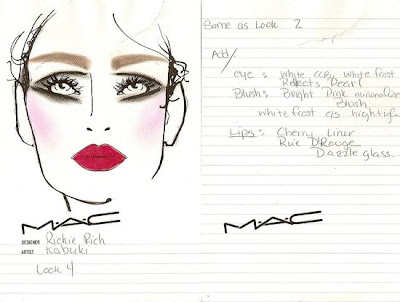 MAC
DESIGNER Richie Rich
ARTIST Kabuki
Look 4
Same as Look 2
Add/
eye: White CCB, white frost
Reflects Pearl
Blush: Bright Pink mineralize
Blush
white frost e/s hightlight
Lips: Cherry Liner
Rue D'Rouge
Dazzle glass.
MAC